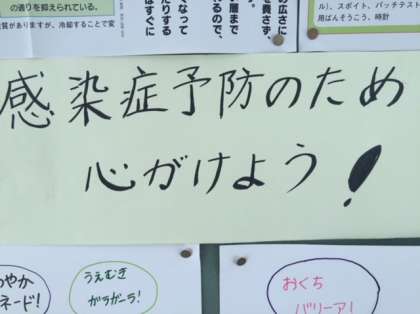 の通りを抑えられている。
質がありますが、冷却することで変
広さに
を費さず、
層まで
れるので、
くなって
たりする
はすぐに
ル)、スポイト、パッチテスト
用ばんそうこう、時計
感染症予防のため
心がけよう!
わやか
ネード!
うえむき
ガラガーラ!
おくち
バリーア!